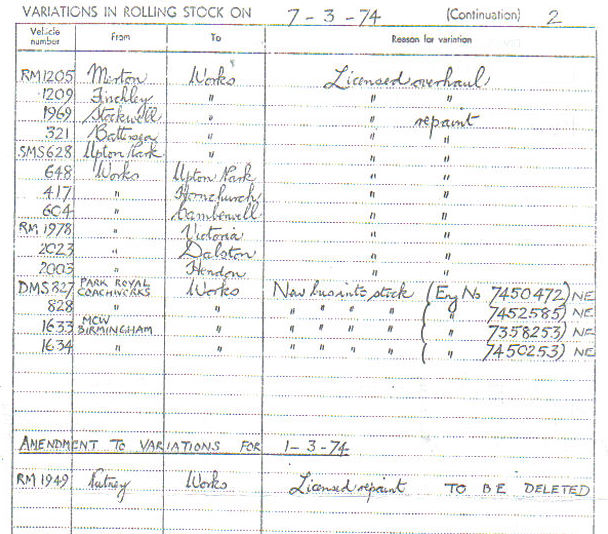 VARIATIONS IN ROLLING STOCK ON 7-3-74 (Continuation) 2
Vehicle number From To Reason for variation
RM1205 Merton Works Licensed overhaul
1209 Finchley " " "
1969 Stockwell " " repaint
321 Battersea " " "
SMS628 Upton Park " " "
648 Works Upton Park " "
417 " Hornchurch " "
604 " Camberwell " "
RM1978 " Victoria " "
2023 " Dalston " "
2003 " Hendon " "
DMS827 PARK ROYAL COACHWORKS Works New bus into stock (Eng No 7450472) NE
828 " " " " " " ( " 7452585) NE
1633 MCW BIRMINGHAM " " " " " ( " 7358253) NE
1634 " " " " " " ( " 7450253) NE
AMENDMENT TO VARIATIONS FOR 1-3-74
RM1949 Putney Works Licensed repaint TO BE DELETED